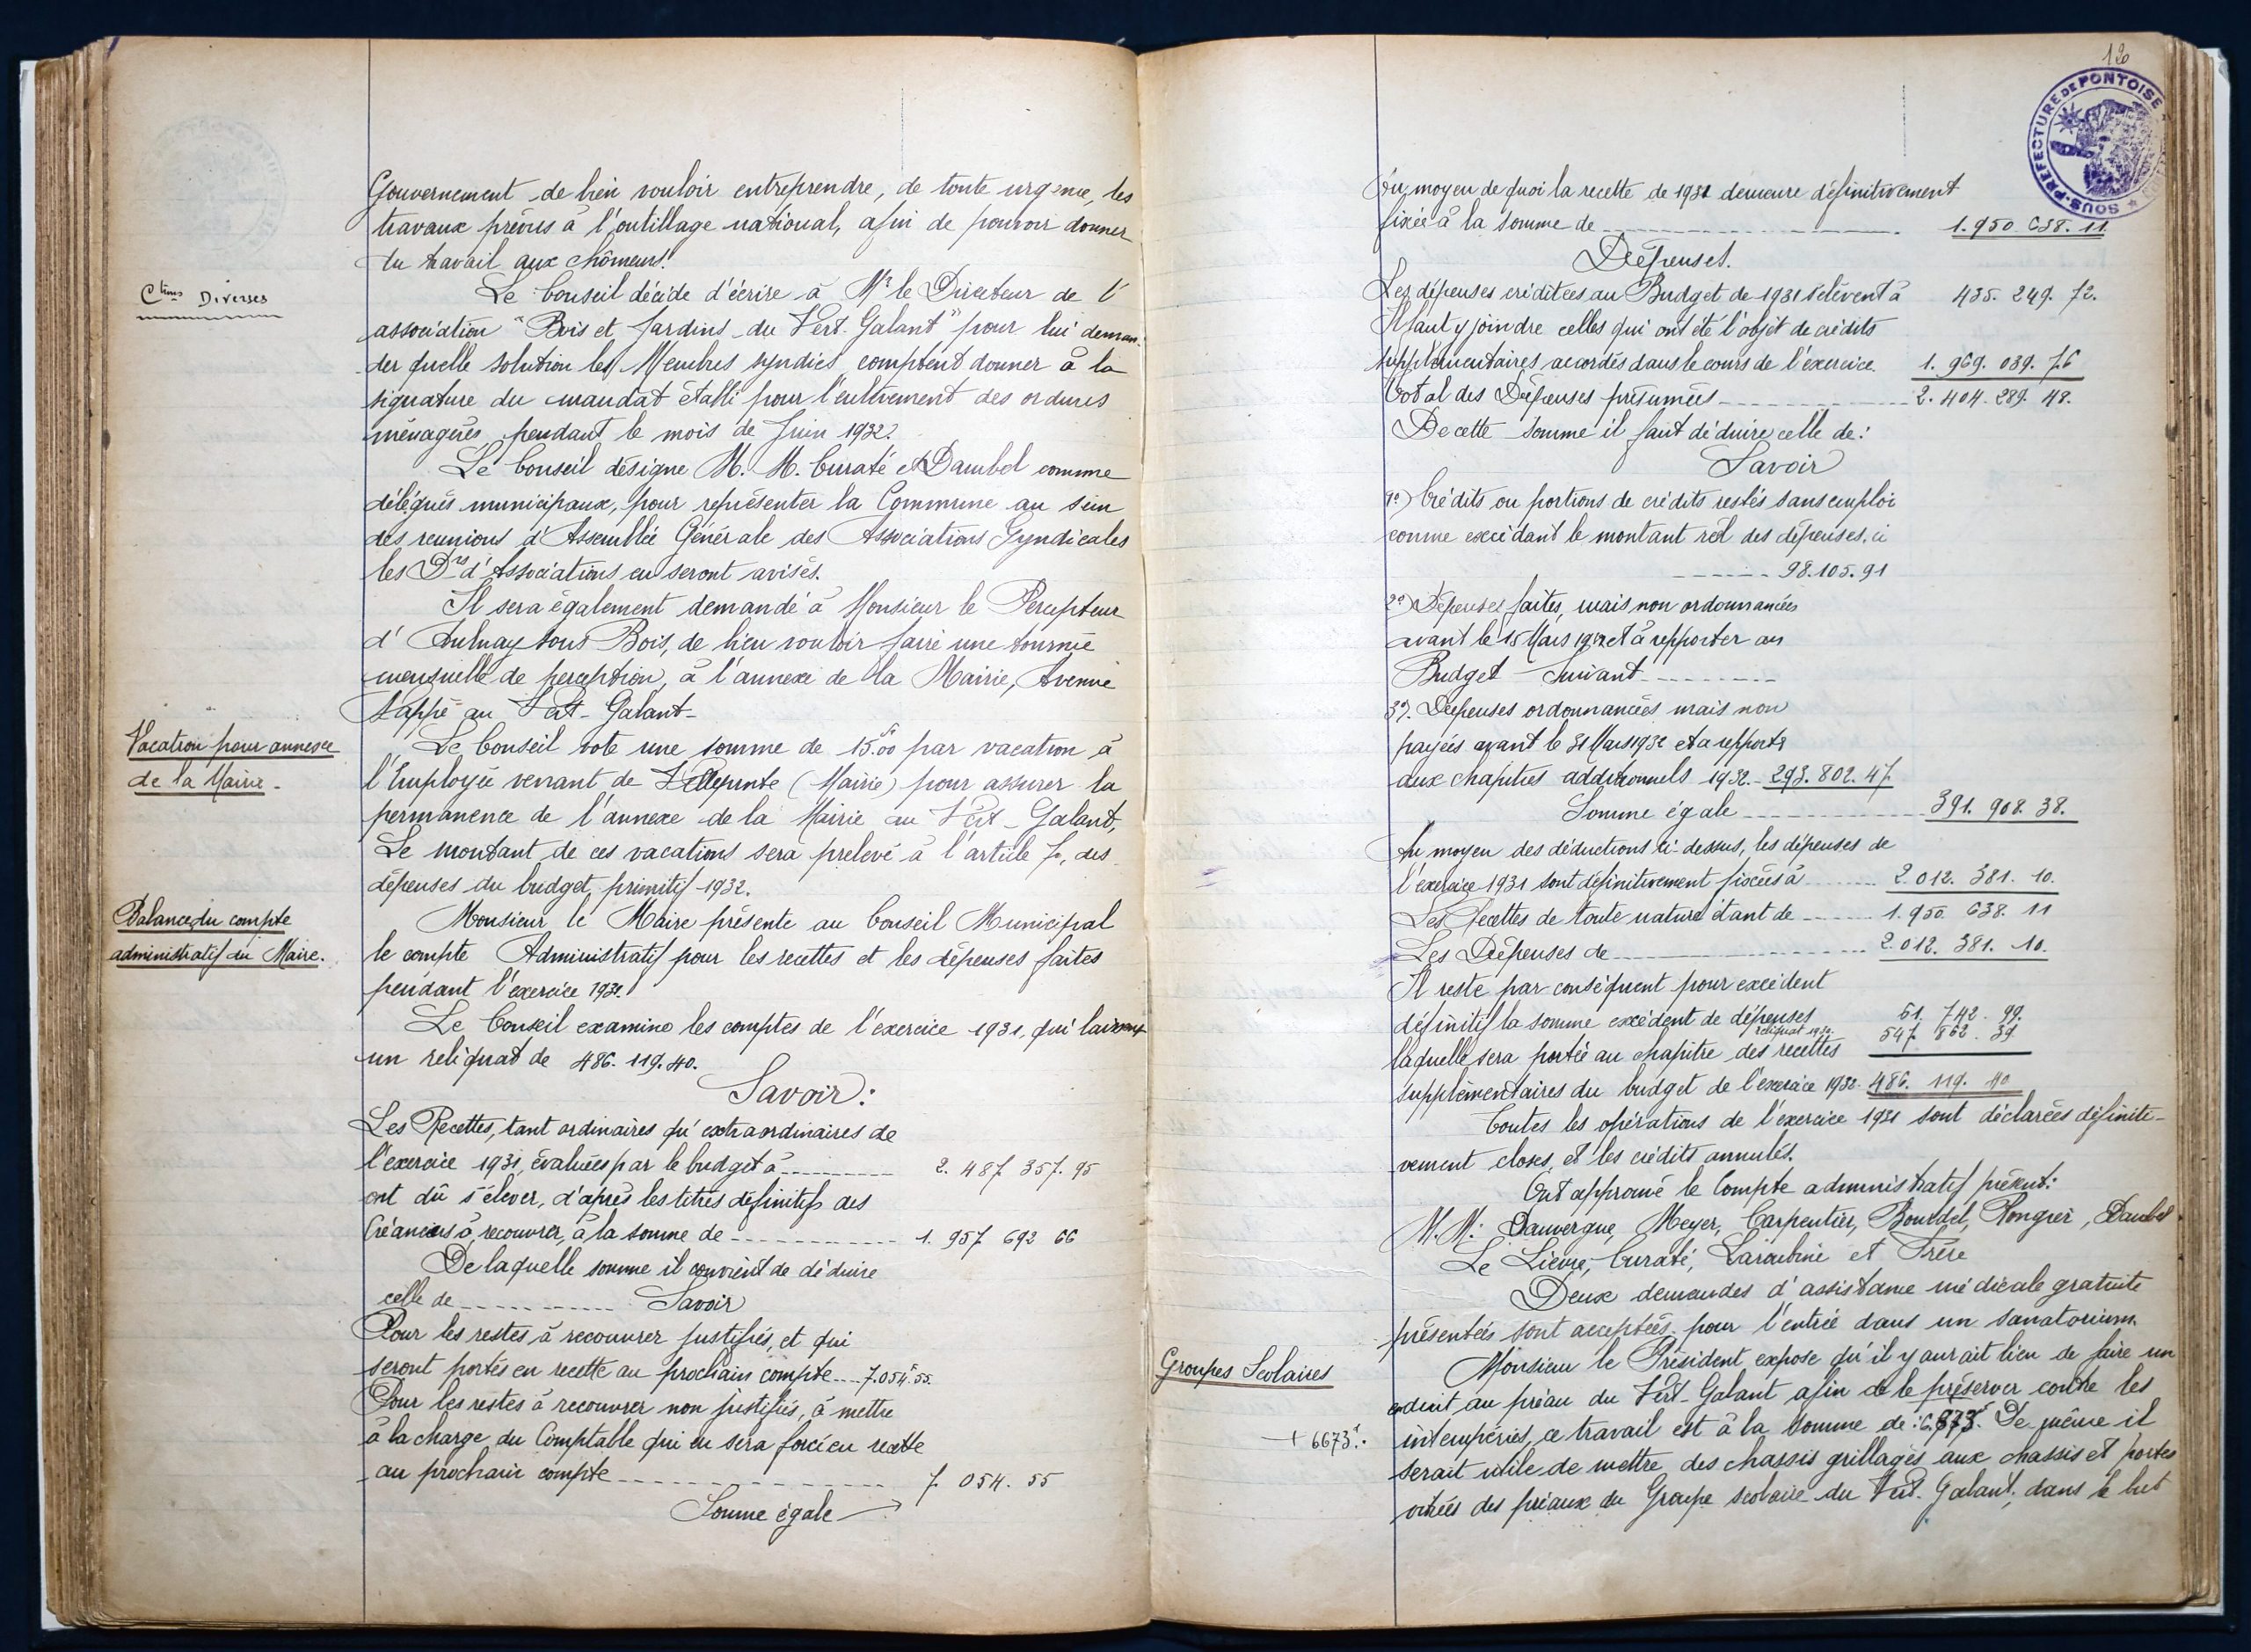 Gouvernement de bien vouloir entreprendre, de toute urgence, les
travaux prévus à l'outillage national, afin de pouvoir donner
du travail aux chômeurs.
Ctions Diverses
Le Conseil décide d'écrire à Mr le Directeur de l'
association "Bois et Jardins du Vert-Galant" pour lui deman-
der quelle solution les Membres syndics comptent donner à la
signature du mandat établi pour l'enlèvement des ordures
ménagères pendant le mois de Juin 1932.
Le Conseil désigne M. M. Curaté et Daubel comme
délégués municipaux, pour représenter la Commune au sein
des reunions d'Assemblée Générale des Associations Syndicales
les Drs d'Associations en seront avisés.
Il sera également demandé à Monsieur le Percepteur
d'Aulnay sous Bois, de bien vouloir faire une tournée
mensuelle de perception, à l'annexe de la Mairie, Avenue
au Vert-Galant-
Vacation pour annexe
de la Mairie.
Le Conseil vote une somme de 15f00 par vacation à
l'Employé venant de Villepinte (Mairie) pour assurer la
permanence de l'annexe de la Mairie au Vert-Galant,
Le montant de ces vacations sera prelevé à l'article 7, des
dépenses du budget primitif 1932.
Balance du compte
administratif du Maire.
Monsieur le Maire présente au Conseil Municipal
le compte Administratif pour les recettes et les dépenses faites
pendant l'exercice 1931.
Le Conseil examine les comptes de l'exercice 1931, qui laissent
un reliquat de 486.119.40.
Savoir:
Les Recettes, tant ordinaires qu'extraordinaires de
l'exercice 1931, évaluées par le budget à 2.487.357.95
ont dû s'élever, d'après les titres définitifs des
Créances à recouvrer, à la somme de 1.957 692 66
De laquelle somme il convient de déduire
celle de Savoir
Pour les restes à recouvrer justifiés, et qui
seront portés en recette au prochain compte 7.054f.55.
Pour les restes à recouvrer non justifiés, à mettre
à la charge du Comptable qui en sera forcé en recette
au prochain compte 7 054.55
Somme égale
120
SOUS-PREFECTURE DE PONTOISE
Au moyen de quoi la recette de 1931 demeure définitivement
fixée à la somme de 1.950.638.11
Dépenses.
Les dépenses créditées au Budget de 1931 s'élèvent à 435.249.72.
Il faut y joindre celles qui ont été l'objet de crédits
supplémentaires accordés dans le cours de l'exercice 1.969.039.76
Total des Dépenses présumées 2.404.289.48.
De cette somme il faut déduire celle de:
Savoir
1°) Crédits ou portions de crédits restés sans emploi
comme excédant le montant réel des dépenses, ci
98.105.91
2°) Dépenses faites, mais non ordonnancées
avant le 15 Mars 1932 et à repporter au
Budget Suivant
3°). Dépenses ordonnancées mais non
payées avant le 31 Mars 1932 et a repporter
aux chapitres additionnels 1932 293.802.47
Somme égale 391.908.38.
Au moyen des déductions ci-dessus, les dépenses de
l'exercice 1931 sont définitivement fixées à 2.012.381.10.
Les Recettes de toute nature étant de 1.950.638.11
Les Dépenses de 2.012.381.10.
Il reste par conséquent pour excédent
définitif la somme excédent de dépenses 61.742.99.
reliquat 547.862.39
laquelle sera portée au chapitre des recettes
supplémentaires du budget de l'exercice 1932 486.119.40
Toutes les opérations de l'exercice 1931 sont déclarées définiti-
vement closes, et les crédits annulés.
Ont approuvé le Compte administratif présent:
M. M. Dauvergne, Meyer, Carpentier, Bourdel, Daubel
Le Lièvre, Curaté, et Frère
Deux demandes d'assistance médicale gratuite
présentées sont acceptées pour l'entrée dans un sanatorium.
Groupes Scolaires
Monsieur le Président expose qu'il y aurait lieu de faire un
enduit au préau du Vert-Galant afin de le préserver contre les
+ 6673f.
intempéries, ce travail est à la somme de: 6.673f. De même il
serait utile de mettre des chassis grillagés aux chassis et portes
vitrées des préaux du Groupe scolaire du Vert-Galant, dans le but